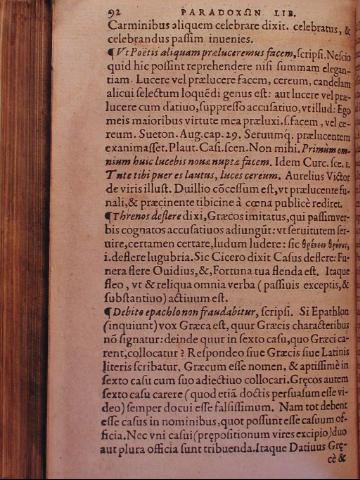 92 PARADOXΩN LIB.
Carminibus aliquem celebrare dixit. celebratus, &
celebrandus passim inuenies.
¶Vt Poëtis aliquam præluceremus facem, scripsi. Nescio
quid hic possint reprehendere nisi summam elegan-
tiam. Lucere vel prælucere facem, cereum, candelam
alicui selectum loquēdi genus est: aut lucere vel præ-
lucere cum datiuo, suppresso accusatiuo, vt illud: Ego
meis maioribus virtute mea præluxi. s. facem, vel ce-
reum. Sueton. Aug. cap. 29. Seruumq; prælucentem
exanimasset. Plaut. Casi. scen. Non mihi. Primum om-
nium huic lucebis nouæ nuptæ facem. Idem Curc. sce. 1.
Tute tibi puer es lautus, luces cereum. Aurelius Victor
de viris illust. Duillio cōcessum est, vt prælucente fu-
nali, & præcinente tibicine à cœna publicè rediret.
¶Threnos deflere dixi, Græcos imitatus, qui passim ver-
bis cognatos accusatiuos adiungūt: vt seruitutem ser-
uire, certamen certare, ludum ludere: sic θρήνον θρήνειν,
i. deflere lugubria. Sic Cicero dixit Casus deflere: Fu-
nera flere Ouidius, &, Fortuna tua flenda est. Itaque
fleo, vt & reliqua omnia verba (passiuis exceptis, &
substantiuo) actiuum est.
¶Debito epathlo non fraudabitur, scripsi. Si Epathlon
(inquiunt) vox Græca est, quur Græcis characteribus
nō signatur: deinde quur in sexto casu, quo Græci ca-
rent, collocatur? Respondeo siue Græcis siue Latinis
literis scribatur, Græcum esse nomen, & aptissimè in
sexto casu cum suo adiectiuo collocari. Gręcos autem
sexto casu carere (quod etiā doctis persuasum esse vi-
deo) semper docui esse falsissimum. Nam tot debent
esse casus in nominibus, quot possunt esse casuum of-
ficia. Nec vni casui (prępositionum vires excipio) duo
aut plura officia sunt tribuenda. Itaque Datiuus Grę-
cè &